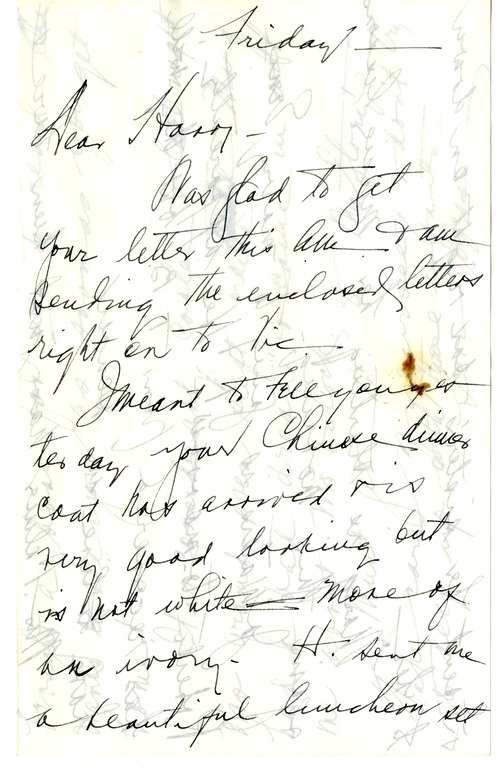 Friday —
Dear Harry -
Was glad to get
your letter this am & am
sending the enclosed letters
right on to Vic —
I meant to tell you yes
terday your Chinese dinner
coat has arrived & is
very good looking but
is not white — more of
an ivory - H. sent me
a beautiful luncheon set